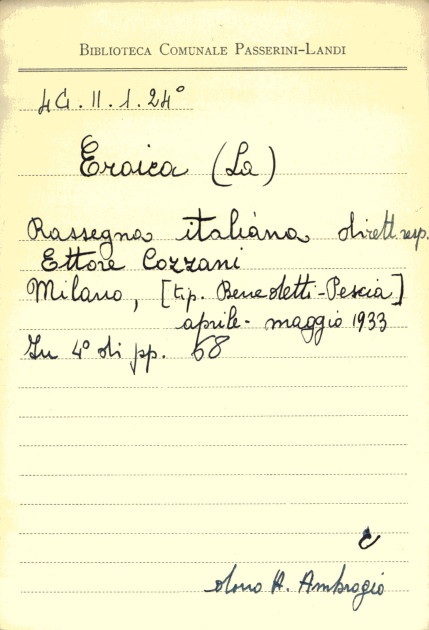 BIBLIOTECA COMUNALE PASSERINI-LANDI
4G.II.1.24°
Eroica (La)
Rassegna italiana dirett. resp.
Ettore Cozzani
Milano, [tip. Benedetti-Pescia]
aprile - maggio 1933
In 4° di pp. 68
dono A. Ambrogio